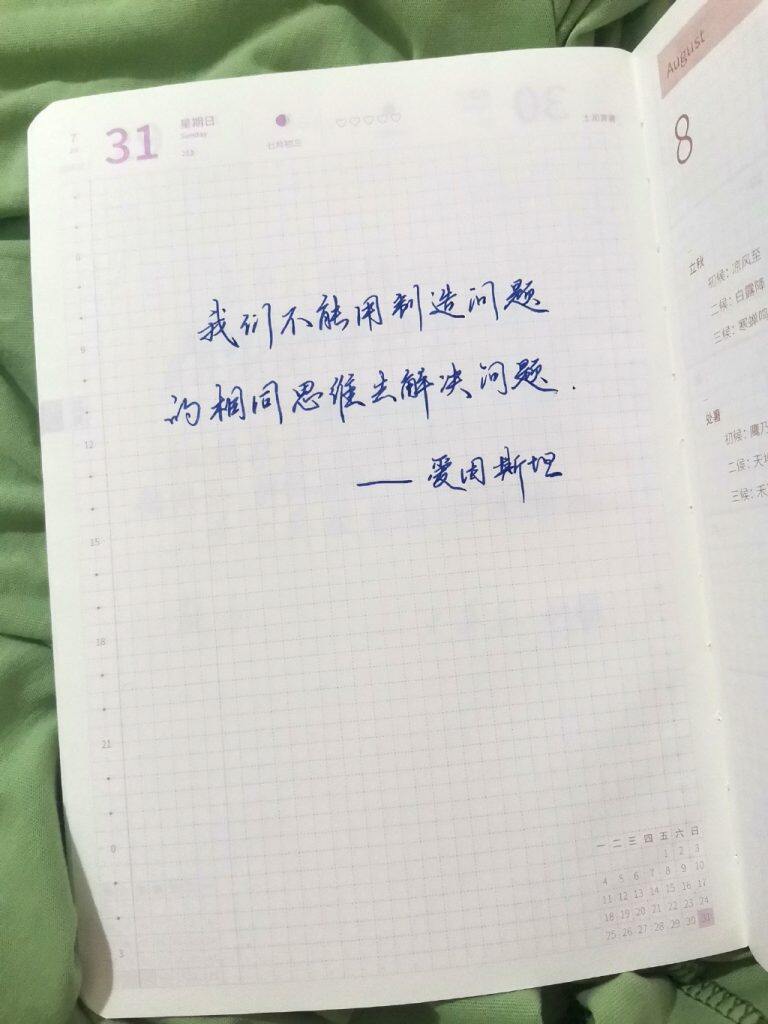 7
31
星期日
Sunday
213
七月初三
August
8
我们不能用制造问题
的相同思维去解决问题.
—— 爱因斯坦
立秋
初候：凉风至
二候：白露降
三候：寒蝉鸣
处暑
初候：鹰乃
二候：天地
三候：禾
9
12
15
18
21
0
3
一 二 三 四 五 六 日
1 2 3
4 5 6 7 8 9 10
11 12 13 14 15 16 17
18 19 20 21 22 23 24
25 26 27 28 29 30 31